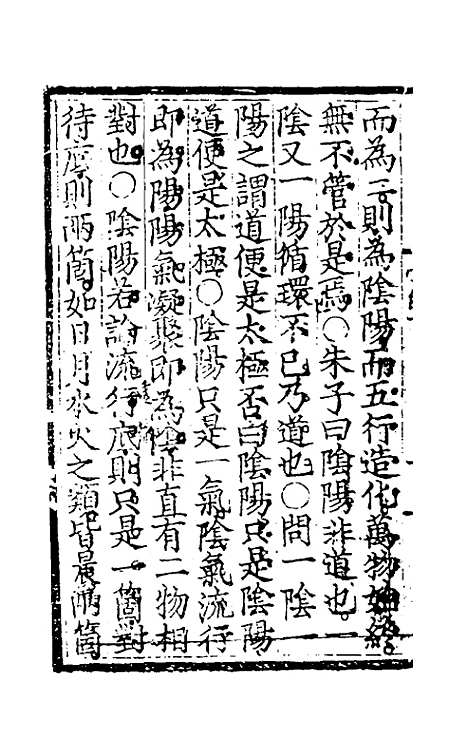 而為二則為陰陽而五行造化萬物始終
無不管於是焉〇朱子曰陰陽非道也一
陰又一陽循環不已乃道也〇問一陰一
陽之謂道便是太極否曰陰陽只是陰陽
道便是太極〇陰陽只是一氣陰氣流行
即為陽陽氣凝聚即為陰非直有二物相
對也〇陰陽若論流行底則只是一箇對
待底則兩箇如日月水火之類皆是兩箇